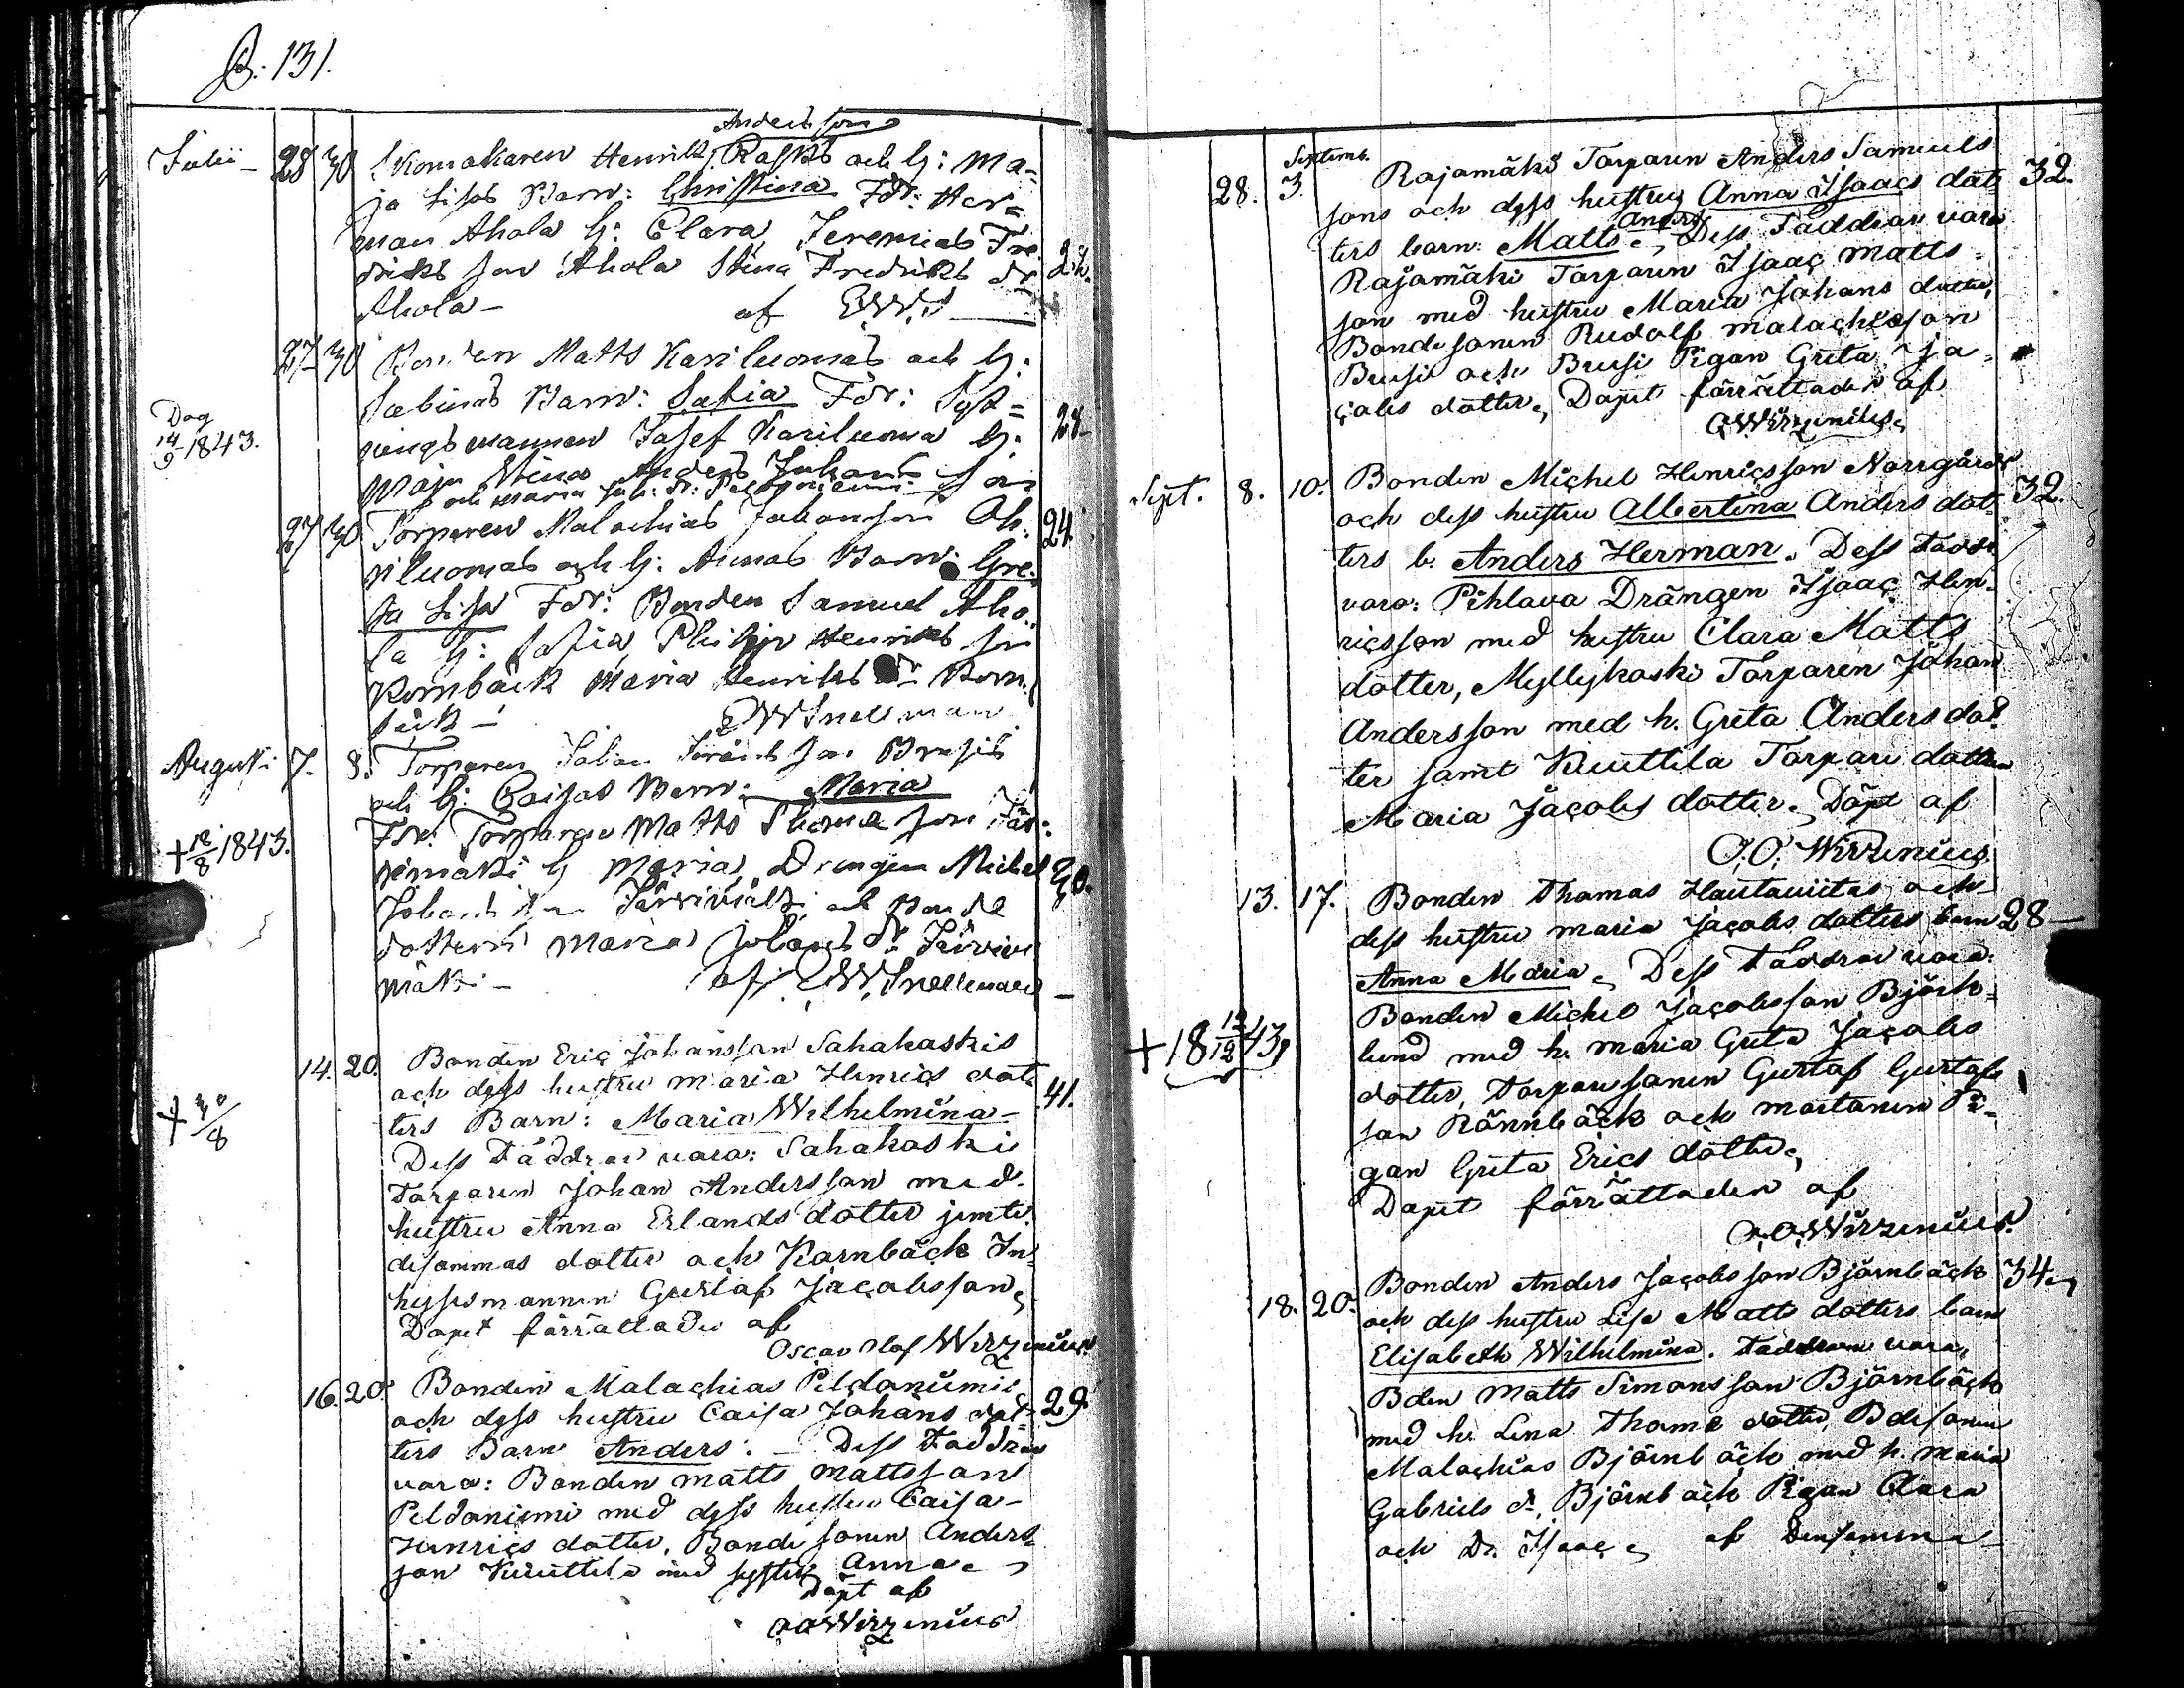 P. 131.
Anders son
Julii - 28 30 Skomakaren Henrik Rasks och h: Ma=
ja Lisas Barn: Christina Fdr: Her=
man Ahola h: Clara, Jeremias Fre
driks son Ahola Stina Fredriks dr
Ahola - af EWS
27 30 Bonden Matts Kariluomas och h: 
Sabinas Barn: Safia Fdr:
Dag
14/9 1843.
mannen Josef Kariluoma h: 28-
Maja Stina Anders Johans son
och Maria Joh: dr:
27 30 Torparen Malachias Johansson 24.
riluomas och h: Annas Barn: Gre=
ta Lisa Fdr: Bonden Samuel Aho=
la h: Safia, Philip Henriks son
Kornbäck Maria Henriks dr Korn=
bäck - EW Snellman
Augusti 7. 8. Torparen Johan son Brusis
och h: Caisas Barn: Maria
Fdr: Torparen Matts son Jär=
+ 18/8 1843.
vimäki h Maria, Drengen Michel 30.
Johans son och Bonde
dottern Maria Johans dr Järvi
mäki - af EW. Snellman
14. 20. Bonden Eric Johansson Sahakoskis
och dess hustru Maria Henrics dot 41.
ters Barn: Maria Wilhelmina -
+ 30/8
Dess Faddrar voro: Sahakoski
Torparen Johan Andersson med
hustru Anna Erlands dotter jemte
desammas dotter och Kornbäck In=
hysesmannen Gustaf Jacobsson,
Dopet förrättades af
Oscar Olof Wirzenius
16. 20. Bonden Malachias Peldoniemis
och dess hustru Caisa Johans dot= 29.
ters Barn Anders. - Dess Faddrar
voro: Bonden Matts Mattsson
Peldoniemi med dess hustru Caisa
Henrics dotter, Bondesonen Anders=
son Kuuttila med syster Anna,
Döpt af
OO Wirzenius
Septemb.
28. 3. Rajamäki Torparen Anders Samuels 32.
sons och dess hustru Anna Isaacs dot
Anders
ters barn: Matts, Dess Faddrar voro
Rajamäki Torparen Isaac Matts=
son med hustru Maria Johans dotter,
Bondesonen Rudolf Malachiasson
Brusi och Brusi Pigan Greta Ja=
cobs dotter, Dopet förrättades af
O Wirzenius
Sept. 8. 10. Bonden Michel Henricsson Norrgårds
och dess hustru Albertina Anders dot 32.
ters b. Anders Herman. Dess Faddr
voro: Pihlava Drängen Isaac Hen=
ricsson med hustru Clara Matts
dotter, Myllykoski Torparen Johan
Andersson med h. Greta Anders dot
ter samt Kuuttila Torpare dottern
Maria Jacobs dotter. Döpt af
O. O. Wirzenius
13. 17. Bonden Thomas Hautaviitas och
dess hustru Maria Jacobs dotters barn 28 -
Anna Maria, Dess Faddrar voro:
Bonden Michel Jacobsson Björk=
+ 18 12/12 43,
lund med h. Maria Greta Jacobs
dotter, Torparesonen Gustaf Gustafs
son Rönnbäck och Pi=
gan Greta Erics dotter,
Dopet förrättades af
O. O. Wirzenius.
Bonden Anders Jacobsson Björnbäck 34.
18. 20. och dess hustru Lisa Matts dotters barn
Elisabeth Wilhelmina. Faddrarne voro,
Bden Matts Simonsson Björnbäck
med h. Lena Thoms dotter, Bdesonen
Malachias Björnbäck med h. Maria
Gabriels d. Björnbäck Pigan Clara
och Dr. Isaac, af Densamma